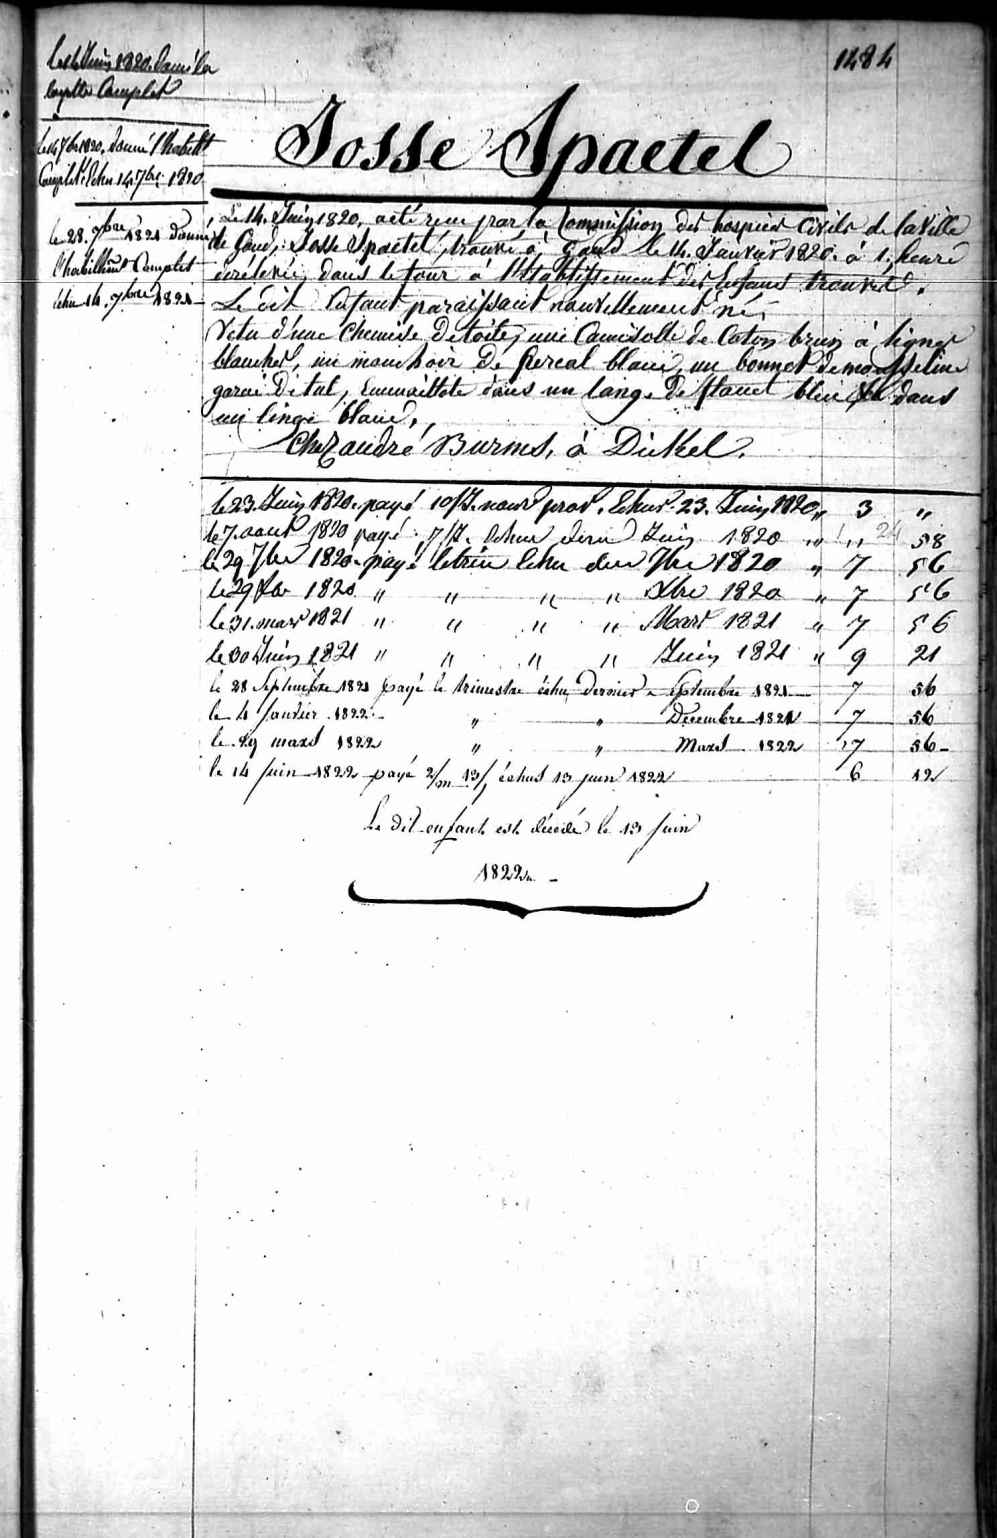 1484
le 14 Juin 1820. donné la
layette Complet
le 14 7bre 1820, donné l'habillt
Complet Echu 14 7bre 1820
le 28. 7bre 1821 donné
l'habillemt Complet
echu 14. 7bre 1821
Josse Spaetel
Le 14. Juin 1820, a été reçu par la Commission des hospices Civils de la Ville
de Gand, Josse Spaetel, trouvé à Gand le 14. Janvier 1820. à 1, heure
de relevée, dans le tour a l'Etablissement des Enfans trouvés.
Le dit Enfant paraissant nouvellement né,
Vetu d'une Chemise de toile, une Camisolle de Coton brun à lignes
blanches, un mouchoir De percal blanc, un bonnet de mousseline
garni De tul, Emmaillote dans un lange De flanel bleu & dans
un linge blanc,
Chez andré Burms, à Dickel.
le 23. Juin 1820. payé 10/J. nour prov. Echus 23. Juin 1820 „ 3 „
le 7. aout 1820 payé 7/J. Echus dern Juin 1820 „ „ 58
24
le 29 7bre 1820. payé le trim Echu der 7bre 1820 „ 7 56
le 29 Xbr 1820 „ „ „ „ Xbre 1820 „ 7 56
le 31. mars 1821 „ „ „ „ Mars 1821 „ 7 56
le 30 Juin 1821 „ „ „ „ Juin 1821 „ 9 21
le 28 Septembre 1821 payé le trimestre échu Dernier Septembre 1821 7 56
le 4 Janvier 1822 „ „ Decembre 1821 7 56
le 29 mars 1822 „ „ Mars 1822 7 56
le 14 Juin 1822 payé 2/m 13/j échus 13 juin 1822 6 12
Le dit enfant est décédé le 13 Juin
1822